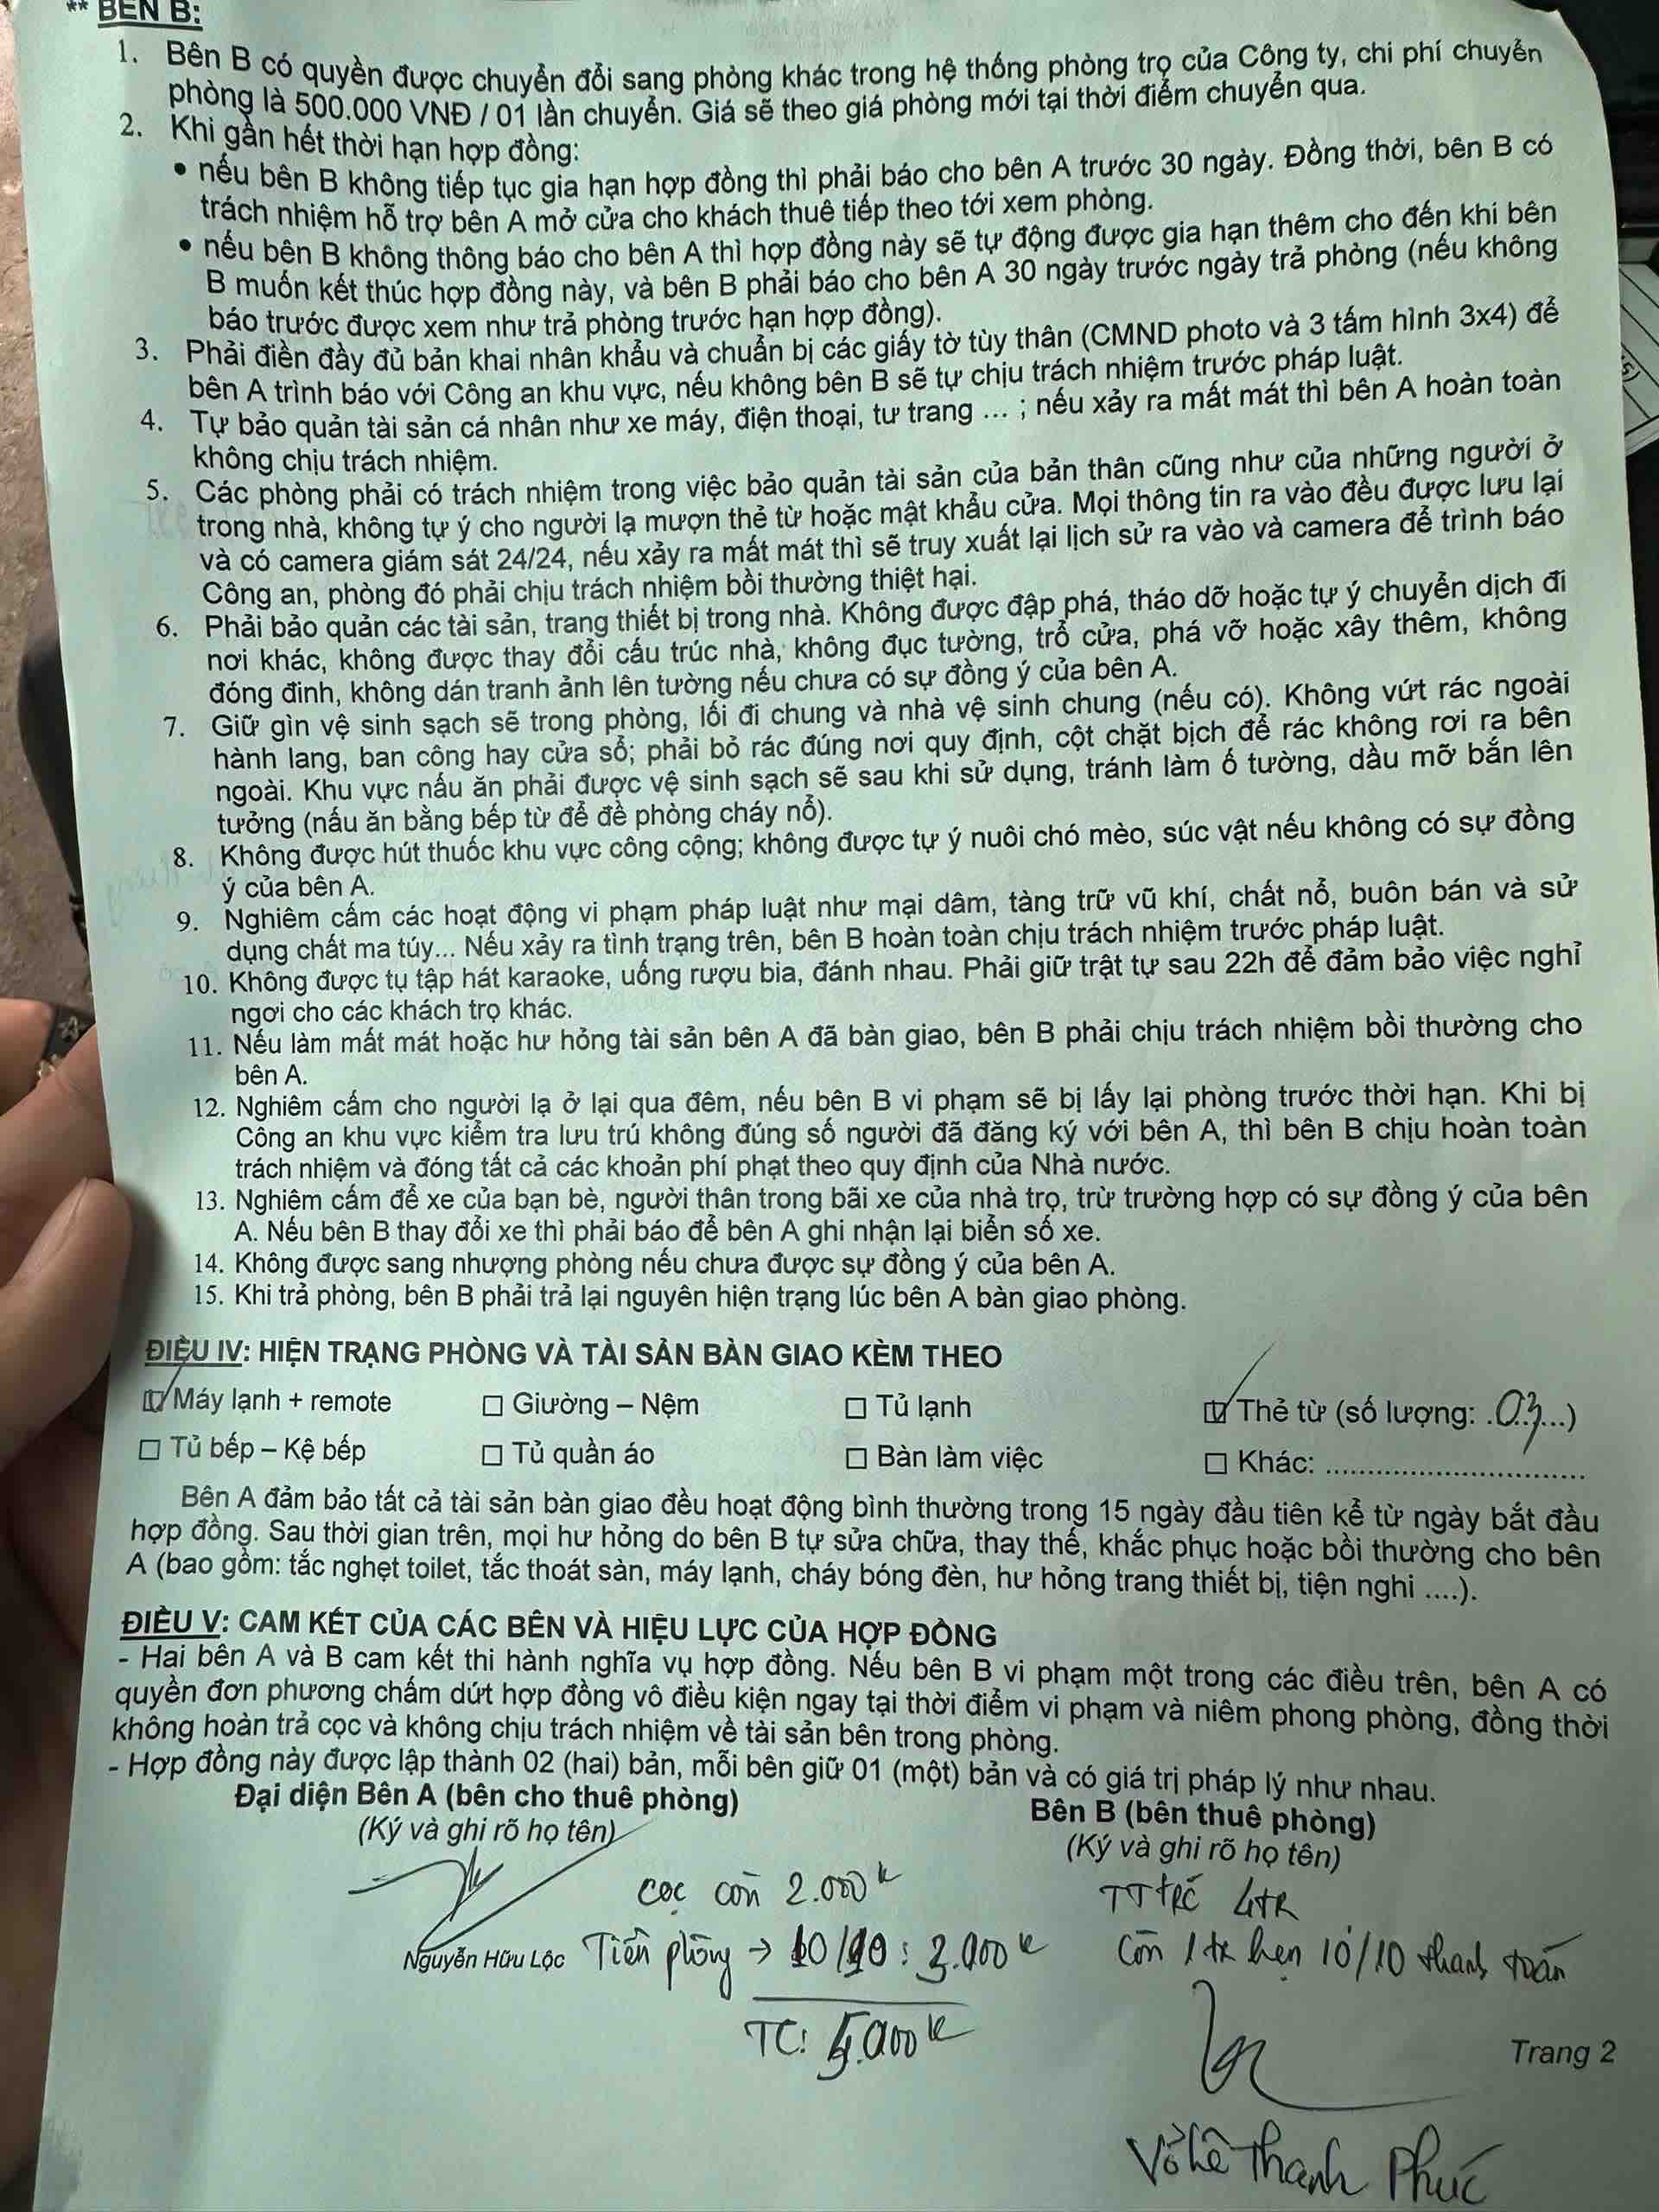 ** BÊN B:
1. Bên B có quyền được chuyển đổi sang phòng khác trong hệ thống phòng trọ của Công ty, chi phí chuyển
phòng là 500.000 VNĐ / 01 lần chuyển. Giá sẽ theo giá phòng mới tại thời điểm chuyển qua.
2. Khi gần hết thời hạn hợp đồng:
• nếu bên B không tiếp tục gia hạn hợp đồng thì phải báo cho bên A trước 30 ngày. Đồng thời, bên B có
trách nhiệm hỗ trợ bên A mở cửa cho khách thuê tiếp theo tới xem phòng.
• nếu bên B không thông báo cho bên A thì hợp đồng này sẽ tự động được gia hạn thêm cho đến khi bên
B muốn kết thúc hợp đồng này, và bên B phải báo cho bên A 30 ngày trước ngày trả phòng (nếu không
báo trước được xem như trả phòng trước hạn hợp đồng).
3. Phải điền đầy đủ bản khai nhân khẩu và chuẩn bị các giấy tờ tùy thân (CMND photo và 3 tấm hình 3x4) để
bên A trình báo với Công an khu vực, nếu không bên B sẽ tự chịu trách nhiệm trước pháp luật.
4. Tự bảo quản tài sản cá nhân như xe máy, điện thoại, tư trang ... ; nếu xảy ra mất mát thì bên A hoàn toàn
không chịu trách nhiệm.
5. Các phòng phải có trách nhiệm trong việc bảo quản tài sản của bản thân cũng như của những người ở
trong nhà, không tự ý cho người lạ mượn thẻ từ hoặc mật khẩu cửa. Mọi thông tin ra vào đều được lưu lại
và có camera giám sát 24/24, nếu xảy ra mất mát thì sẽ truy xuất lại lịch sử ra vào và camera để trình báo
Công an, phòng đó phải chịu trách nhiệm bồi thường thiệt hại.
6. Phải bảo quản các tài sản, trang thiết bị trong nhà. Không được đập phá, tháo dỡ hoặc tự ý chuyển dịch đi
nơi khác, không được thay đổi cấu trúc nhà, không đục tường, trổ cửa, phá vỡ hoặc xây thêm, không
đóng đinh, không dán tranh ảnh lên tường nếu chưa có sự đồng ý của bên A.
7. Giữ gìn vệ sinh sạch sẽ trong phòng, lối đi chung và nhà vệ sinh chung (nếu có). Không vứt rác ngoài
hành lang, ban công hay cửa sổ; phải bỏ rác đúng nơi quy định, cột chặt bịch để rác không rơi ra bên
ngoài. Khu vực nấu ăn phải được vệ sinh sạch sẽ sau khi sử dụng, tránh làm ố tường, dầu mỡ bắn lên
tưởng (nấu ăn bằng bếp từ để đề phòng cháy nổ).
8. Không được hút thuốc khu vực công cộng; không được tự ý nuôi chó mèo, súc vật nếu không có sự đồng
ý của bên A.
9. Nghiêm cấm các hoạt động vi phạm pháp luật như mại dâm, tàng trữ vũ khí, chất nổ, buôn bán và sử
dụng chất ma túy... Nếu xảy ra tình trạng trên, bên B hoàn toàn chịu trách nhiệm trước pháp luật.
10. Không được tụ tập hát karaoke, uống rượu bia, đánh nhau. Phải giữ trật tự sau 22h để đảm bảo việc nghỉ
ngơi cho các khách trọ khác.
11. Nếu làm mất mát hoặc hư hỏng tài sản bên A đã bàn giao, bên B phải chịu trách nhiệm bồi thường cho
bên A.
12. Nghiêm cấm cho người lạ ở lại qua đêm, nếu bên B vi phạm sẽ bị lấy lại phòng trước thời hạn. Khi bị
Công an khu vực kiểm tra lưu trú không đúng số người đã đăng ký với bên A, thì bên B chịu hoàn toàn
trách nhiệm và đóng tất cả các khoản phí phạt theo quy định của Nhà nước.
13. Nghiêm cấm để xe của bạn bè, người thân trong bãi xe của nhà trọ, trừ trường hợp có sự đồng ý của bên
A. Nếu bên B thay đổi xe thì phải báo để bên A ghi nhận lại biển số xe.
14. Không được sang nhượng phòng nếu chưa được sự đồng ý của bên A.
15. Khi trả phòng, bên B phải trả lại nguyên hiện trạng lúc bên A bàn giao phòng.
ĐIỀU IV: HIỆN TRẠNG PHÒNG VÀ TÀI SẢN BÀN GIAO KÈM THEO
☑ Máy lạnh + remote ☐ Giường – Nệm ☐ Tủ lạnh ☑ Thẻ từ (số lượng: .03...)
☐ Tủ bếp – Kệ bếp ☐ Tủ quần áo ☐ Bàn làm việc ☐ Khác: ................................
Bên A đảm bảo tất cả tài sản bàn giao đều hoạt động bình thường trong 15 ngày đầu tiên kể từ ngày bắt đầu
hợp đồng. Sau thời gian trên, mọi hư hỏng do bên B tự sửa chữa, thay thế, khắc phục hoặc bồi thường cho bên
A (bao gồm: tắc nghẹt toilet, tắc thoát sàn, máy lạnh, cháy bóng đèn, hư hỏng trang thiết bị, tiện nghi ....).
ĐIỀU V: CAM KẾT CỦA CÁC BÊN VÀ HIỆU LỰC CỦA HỢP ĐỒNG
- Hai bên A và B cam kết thi hành nghĩa vụ hợp đồng. Nếu bên B vi phạm một trong các điều trên, bên A có
quyền đơn phương chấm dứt hợp đồng vô điều kiện ngay tại thời điểm vi phạm và niêm phong phòng, đồng thời
không hoàn trả cọc và không chịu trách nhiệm về tài sản bên trong phòng.
- Hợp đồng này được lập thành 02 (hai) bản, mỗi bên giữ 01 (một) bản và có giá trị pháp lý như nhau.
Đại diện Bên A (bên cho thuê phòng) Bên B (bên thuê phòng)
(Ký và ghi rõ họ tên) (Ký và ghi rõ họ tên)
cọc còn 2.000k TT trc 4tr
Nguyễn Hữu Lộc Tiền phòng → 10/10 : 3.000k Còn 1 tr hẹn 10/10 thanh toán
TC: 5.000k
Trang 2
Võ Lê Thanh Phúc